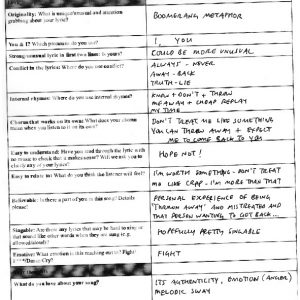 Originality: What is unique/unusual and attention
grabbing about your lyric?
BOOMERANG METAPHOR
You & I? Which pronouns do you use?
I, YOU
Strong/unusual lyric in first two lines: Is yours?
COULD BE MORE UNUSUAL
Conflict in the lyrics: Where do you use conflict?
ALWAYS - NEVER
AWAY - BACK
TRUTH - LIE
Internal rhymes: Where do you use internal rhymes?
KNEW + DON'T + THROW
ME AWAY + CHEAP REPLAY
MY TIME
Chorus that works on its own: What does your chorus
mean when you listen to it on its own?
DON'T TREAT ME LIKE SOMETHING
YOU CAN THROW AWAY + EXPECT
ME TO COME BACK TO YOU
Easy to understand: Have you read through the lyric with
no music to check that it makes sense? Will we ask you to
clarify any of your lyrics?
HOPE NOT!
Easy to relate to: What do you think the listener will feel?
I'M WORTH SOMETHING - DON'T TREAT
ME LIKE CRAP - I'M MORE THAN THAT
Believable: Is there a part of you in this song? Details?
PERSONAL EXPERIENCE OF BEING
'THROWN AWAY' AND MISTREATED AND
THAT PERSON WANTING TO GET BACK...
Singable: Are there any lyrics that may be hard to sing or
that sound like other words when they are sung (e.g.
HOPEFULLY PRETTY SINGABLE
Emotion: What emotion is this reaching for? Fight/
/Dance/ Cry?
FIGHT
What do you love about your song?
ITS AUTHENTICITY, EMOTION (ANGER)
MELODIC SWAY